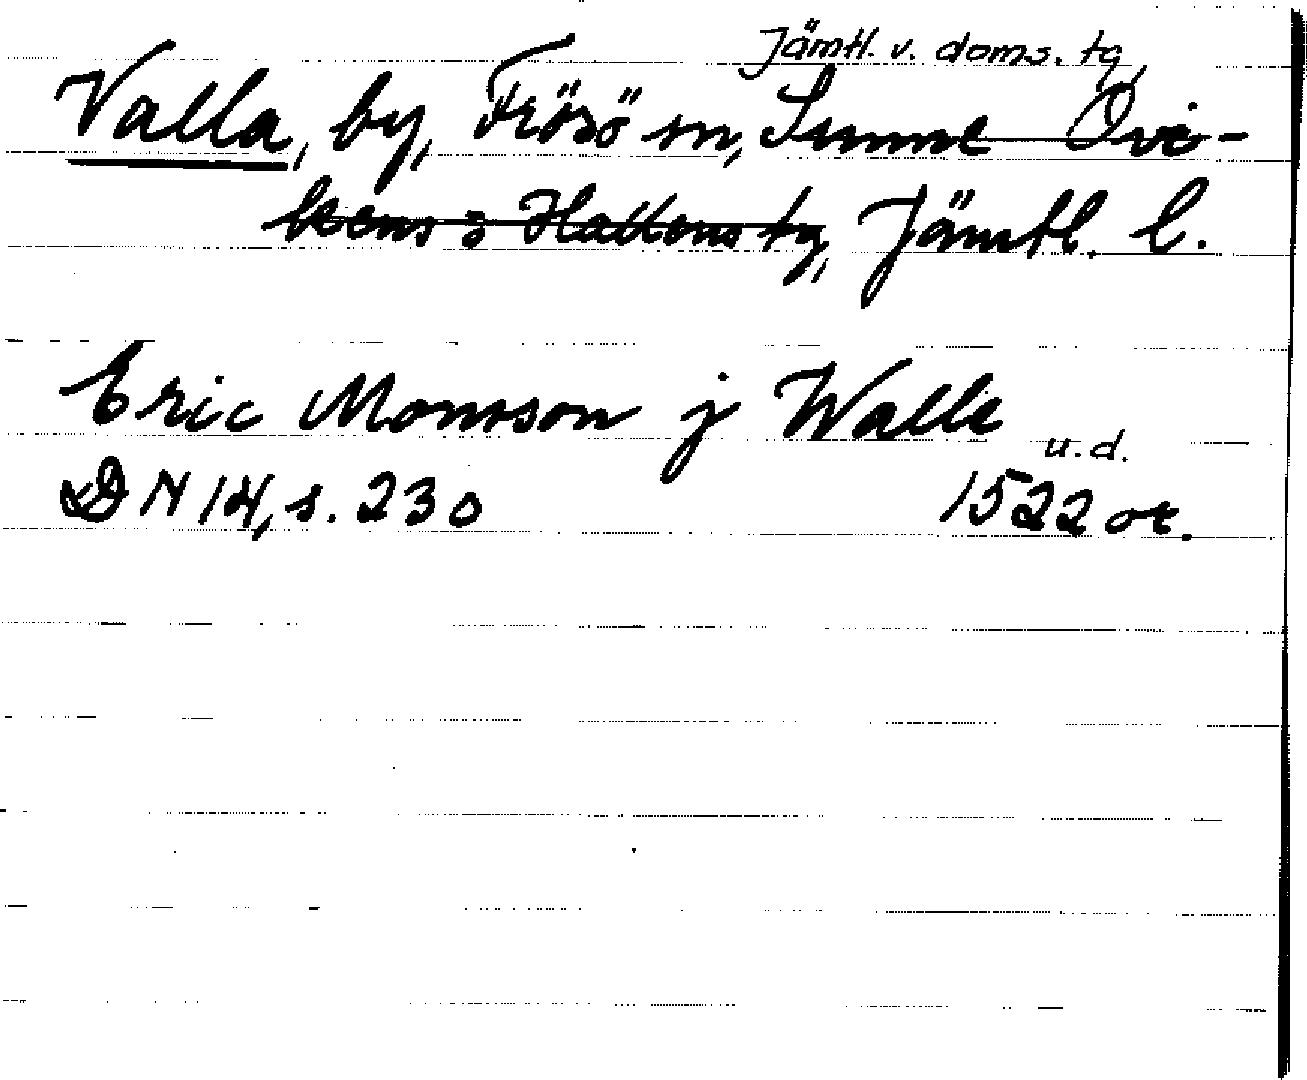 Jämtl. v. doms. tg,
Valla, by, Frösö sn, Sunne Ovi-
kens o Hallens tg, Jämtl. l.
Eric Monsson j Walle
u.d.
DN 14, s. 230 1522 or.